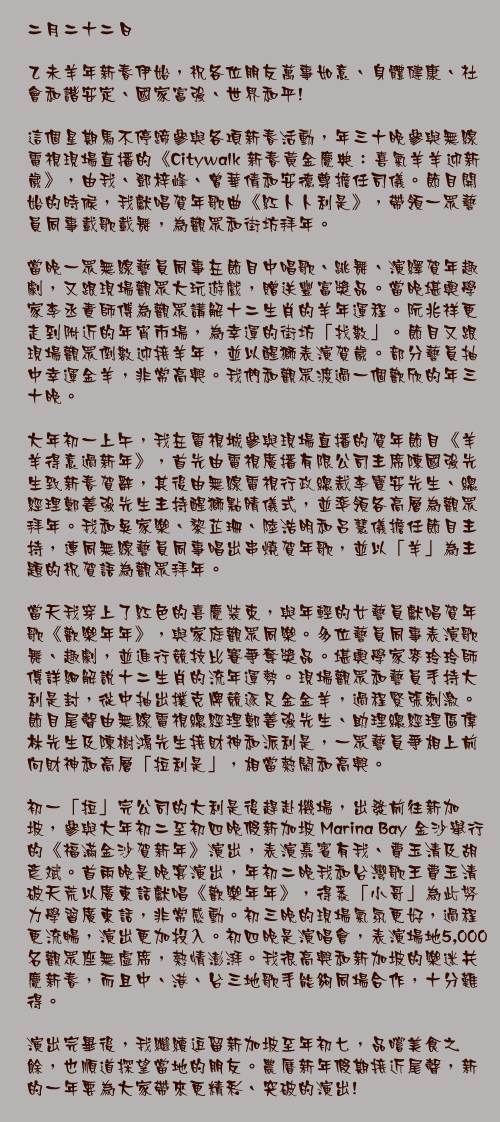 二月二十二日
乙未羊年新春伊始，祝各位朋友萬事如意、身體健康、社
會和諧安定、國家富強、世界和平!
這個星期馬不停蹄參與各項新春活動，年三十晚參與無綫
電視現場直播的《Citywalk 新春黃金慶典：喜氣羊羊迎新
歲》，由我、鄭梓峰、曾華倩和安德尊擔任司儀。節目開
始的時候，我獻唱賀年歌曲《紅卜卜利是》，帶領一眾藝
員同事載歌載舞，為觀眾和街坊拜年。
當晚一眾無綫藝員同事在節目中唱歌、跳舞、演繹賀年趣
劇，又跟現場觀眾大玩遊戲，贈送豐富獎品。當晚堪輿學
家李丞責師傅為觀眾講解十二生肖的羊年運程。阮兆祥更
走到附近的年宵市場，為幸運的街坊「找數」。節目又跟
現場觀眾倒數迎接羊年，並以醒獅表演賀歲。部分藝員抽
中幸運金羊，非常高興。我們和觀眾渡過一個歡欣的年三
十晚。
大年初一上午，我在電視城參與現場直播的賀年節目《羊
羊得意過新年》，首先由電視廣播有限公司主席陳國強先
生致新春賀辭，其後由無綫電視行政總裁李寶安先生、總
經理鄭善強先生主持醒獅點睛儀式，並率領各高層為觀眾
拜年。我和吳家樂、黎芷珊、陸浩明和呂慧儀擔任節目主
持，連同無綫藝員同事唱出串燒賀年歌，並以「羊」為主
題的祝賀語為觀眾拜年。
當天我穿上了紅色的喜慶裝束，與年輕的女藝員獻唱賀年
歌《歡樂年年》，與家庭觀眾同樂。多位藝員同事表演歌
舞、趣劇，並進行競技比賽爭奪獎品。堪輿學家麥玲玲師
傅詳細解說十二生肖的流年運勢。現場觀眾和藝員手持大
利是封，從中抽出撲克牌競逐足金金羊，過程緊張刺激。
節目尾聲由無綫電視總經理鄭善強先生、助理總經理區偉
林先生及陳樹鴻先生接財神和派利是，一眾藝員爭相上前
向財神和高層「拉利是」，相當熱鬧和高興。
初一「拉」完公司的大利是後趕赴機場，出發前往新加
坡，參與大年初二至初四晚假新加坡 Marina Bay 金沙舉行
的《福滿金沙賀新年》演出，表演嘉賓有我、費玉清及胡
彥斌。首兩晚是晚宴演出，年初二晚我和台灣歌王費玉清
破天荒以廣東話獻唱《歡樂年年》，得悉「小哥」為此努
力學習廣東話，非常感動。初三晚的現場氣氛更好，過程
更流暢，演出更加投入。初四晚是演唱會，表演場地5,000
名觀眾座無虛席，熱情澎湃。我很高興和新加坡的樂迷共
慶新春，而且中、港、台三地歌手能夠同場合作，十分難
得。
演出完畢後，我繼續逗留新加坡至年初七，品嚐美食之
餘，也順道探望當地的朋友。農曆新年假期接近尾聲，新
的一年要為大家帶來更精彩、突破的演出!